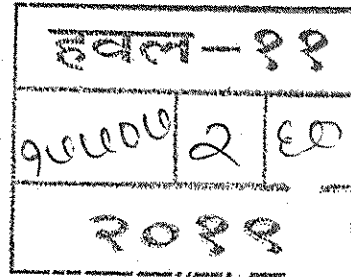 हवल-११
१७७०७ २ ६०
२०११